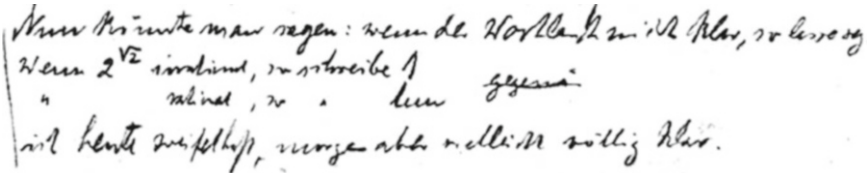 Nun könnte man sagen: wenn der Wortlaut nicht klar, so lasse
Wenn 2^√2 irrational, so schreibe 1
" rational, so "
ist heute zweifelhaft, morgen aber vielleicht völlig klar.